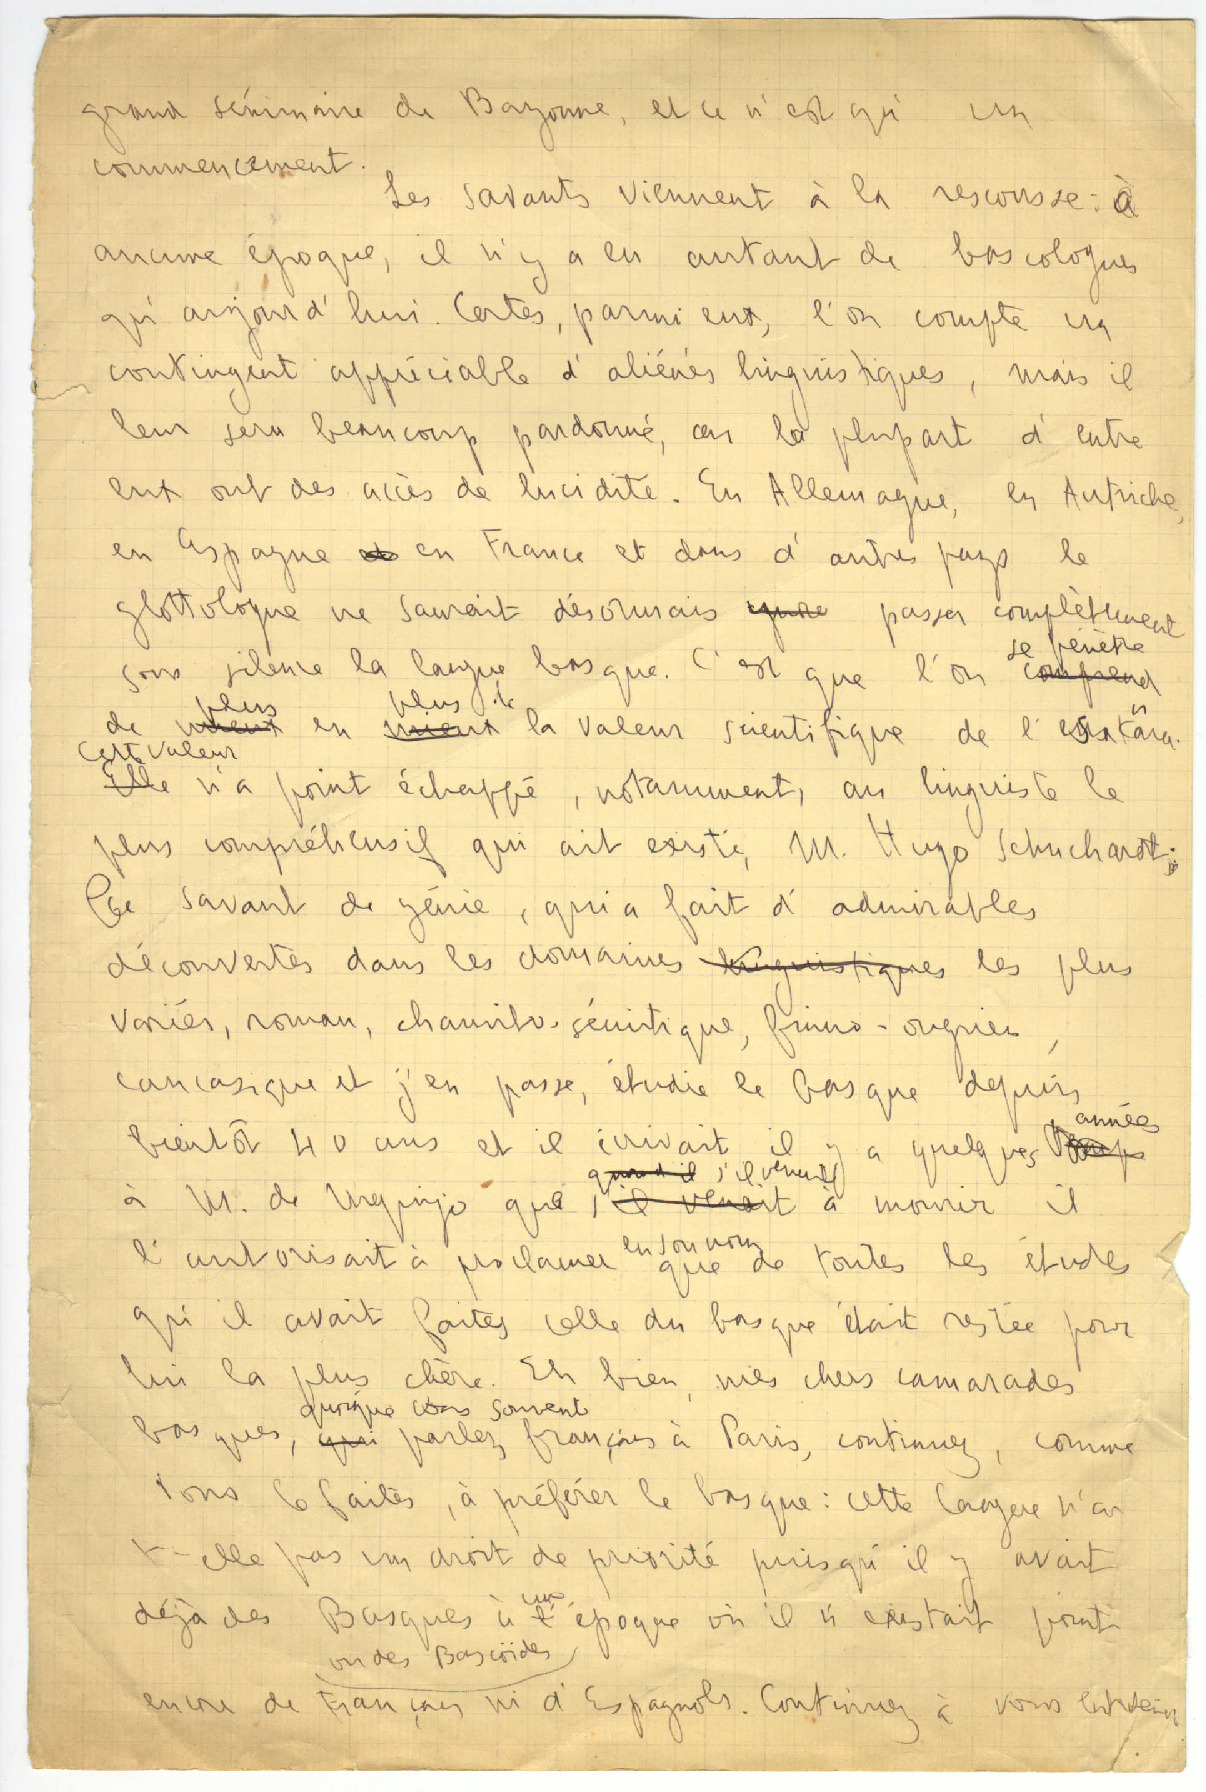 grand séminaire de Bayonne, et ce n'est qu'un
commencement.
Les savants viennent à la rescousse : à
aucune époque, il n'y a eu autant de bascologues
qu'aujourd'hui. Certes, parmi eux, l'on compte un
contingent appréciable d'aliénés linguistiques, mais il
leur sera beaucoup pardonné, car la plupart d'entre
eux ont des accès de lucidité. En Allemagne, en Autriche,
en Espagne et en France et dans d'autres pays le
glottologue ne saurait désormais passer complètement
sous silence la langue basque. C'est que l'on comprend
se pénètre
de mieux en mieux la valeur scientifique de l'euskara.
plus plus de
cette valeur
Elle n'a point échappé, notamment, au linguiste le
plus compréhensif qui ait existé, M. Hugo Schuchardt.
Ce savant de génie, qui a fait d'admirables
découvertes dans les domaines linguistiques les plus
variés, roman, chamito-sémitique, finno-ougrien,
caucasique et j'en passe, étudie le basque depuis
bientôt 40 ans et il écrivait il y a quelques temps
années
à M. de Urquijo que s'il venait à mourir il
quand il s'il venait
l'autorisait à proclamer en son nom que de toutes les études
qu'il avait faites celle du basque était restée pour
lui la plus chère. Eh bien, mes chers camarades
basques, qui parlez français à Paris, continuez, comme
quoique vous souvent
vous le faites, à préférer le basque : cette langue n'a
t-elle pas un droit de priorité puisqu'il y avait
déjà des Basques à l'époque où il n'existait point
une
ou des Bascoïdes
encore de Français ni d'Espagnols. Continuez à vous entretenir